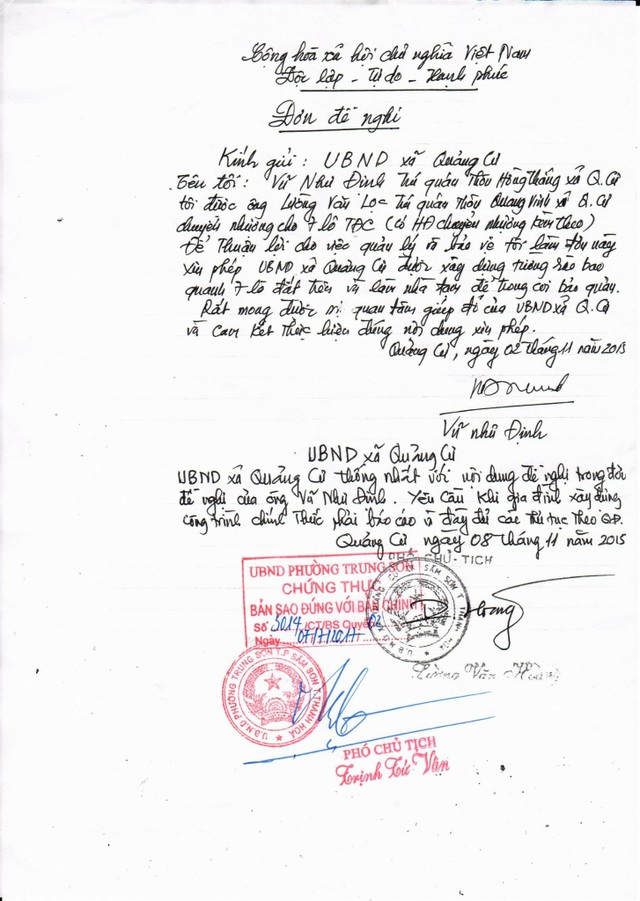 Cộng hoà xã hội chủ nghĩa Việt Nam
Độc lập - Tự do - Hạnh phúc
Đơn đề nghị
Kính gửi: UBND xã Quảng Cư
Tên tôi: Vũ Như Đinh Trú quán Thôn Hồng Thắng xã Q. Cư
tôi được ông Lường Văn Lọc Trú quán Thôn Quang Vinh xã Q. Cư
chuyển nhượng cho 7 lô TĐC (có HĐ chuyển nhượng kèm theo)
Để Thuận lợi cho việc quản lý và bảo vệ tôi làm đơn này
xin phép UBND xã Quảng Cư được xây dựng tường rào bao
quanh 7 lô đất trên và làm nhà tạm để trông coi bảo quản.
Rất mong được sự quan tâm giúp đỡ của UBND xã Q. Cư
và cam kết thực hiện đúng nội dung xin phép.
Quảng Cư, ngày 02 tháng 11 năm 2015
Vũ như Định
UBND xã Quảng Cư
UBND xã Quảng Cư thống nhất với nội dung đề nghị trong đơn
đề nghị của ông Vũ Như Đinh. Yêu cầu khi gia đình xây dựng
công trình chính thức phải báo cáo và đầy đủ các thủ tục theo QĐ.
Quảng Cư ngày 08 tháng 11 năm 2015
PHÓ CHỦ-TỊCH
UBND PHƯỜNG TRUNG SƠN
CHỨNG THỰC
BẢN SAO ĐÚNG VỚI BẢN CHÍNH
Số 5014 /CT/BS Quyển 02
Ngày 07/7/2017
Lường Văn Hoàng
U.B.N.D PHƯỜNG TRUNG SƠN T.P SẦM SƠN T.THANH HOÁ
PHÓ CHỦ TỊCH
Trịnh Tứ Văn